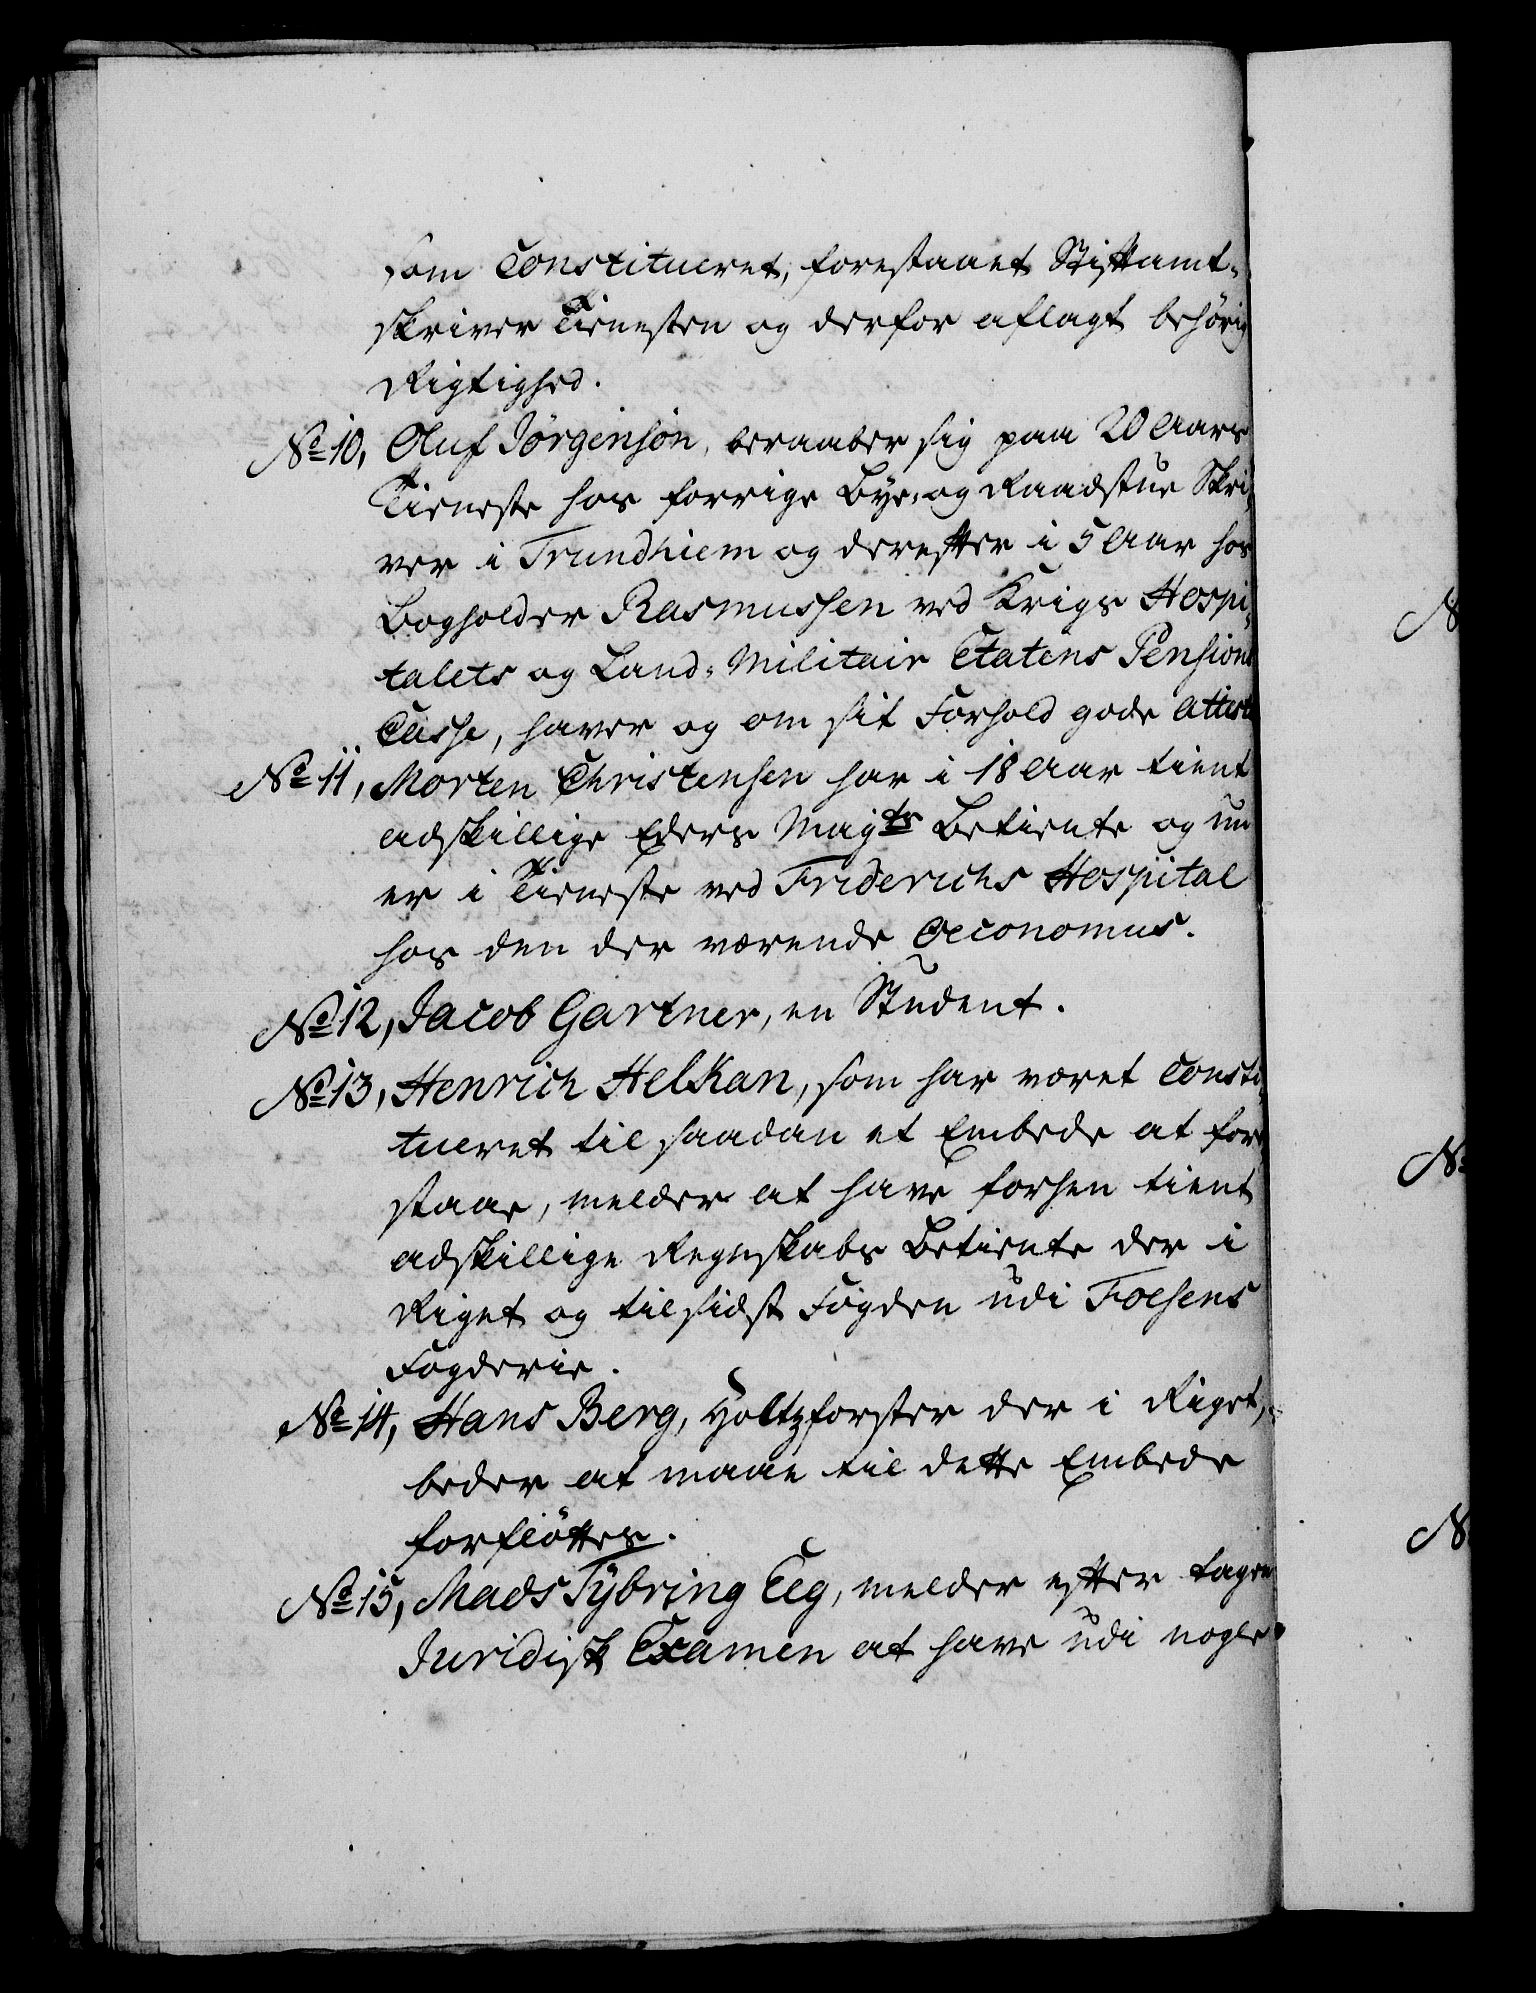 som Constitueret, forestaaet Stiftamt-
skriver Tienesten og derfor aflagt behörig
Rigtighed.
No 10, Oluf Jörgensön, beraaber sig paa 20 Aars
Tieneste hos forrige Bye- og Raadstue Skri-
ver i Trundhiem og derefter i 5 Aar hos
Bogholder Rasmussen ved Krigs Hospi-
talets og Land-Militair Etatens Pensions
Casse, haver og om sit Forhold gode Attester
No 11, Morten Christensen har i 18 Aar tient
adskillige Eders Mayts Betiente og nu
er i Tieneste ved Friderichs Hospital
hos den der værende Oeconomus.
No 12, Jacob Gartner, en Student.
No 13, Henrich Helkan, som har været Consti-
tueret til saadan et Embede at fore-
staae, melder at have forhen tient
adskillige Regnskabs Betiente der i
Riget og tilsidst Fogden udi Foesens
Fogderie.
No 14, Hans Berg, Holtzforster der i Riget,
beder at maae til dette Embede
forfløttes.
No 15, Mads Tybring Eeg, melder efter tagen
Juridisk Examen at have udi nogle